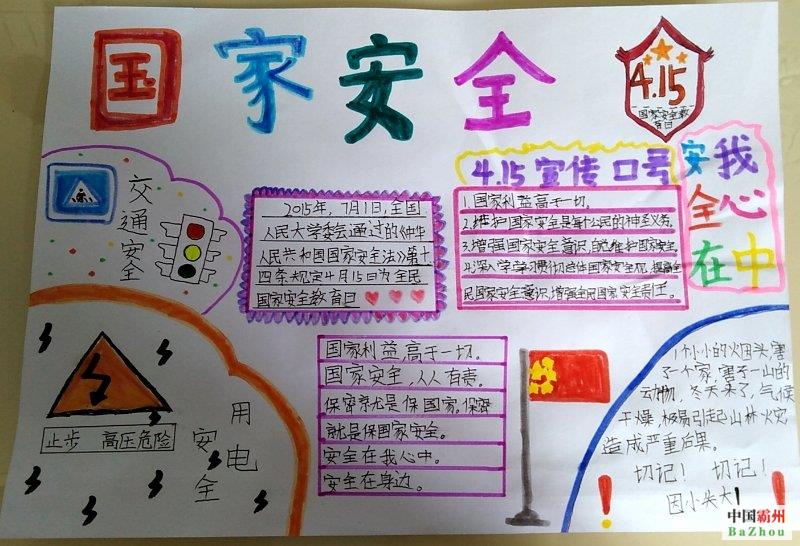 国家安全
4.15
国家安全教
育日
交通安全
2015年,7月1日,全国
人民大学委会通过的《中华
人民共和国国家安全法》第十
四条规定4月15日为全民
国家安全教育日
4.15宣传口号
1.国家利益高于一切。
2.维护国家安全是每个公民的神圣义务。
3.增强国家安全意识,自觉维护国家安全
4.深入学习贯彻总体国家安全观,提高全
民国家安全意识,增强全民国家安全责任。
安全在
我心中
止步 高压危险
用电
安全
国家利益,高于一切。
国家安全,人人有责。
保密就是保国家,保密
就是保国家安全。
安全在我心中。
安全在身边。
1个小小的火因头,害
了一个家,害了一山的
动物,冬天来了,气候
干燥,极易引起山林火灾,
造成严重后果。
切记! 切记!
因小失大!
中国霸州
BaZhou